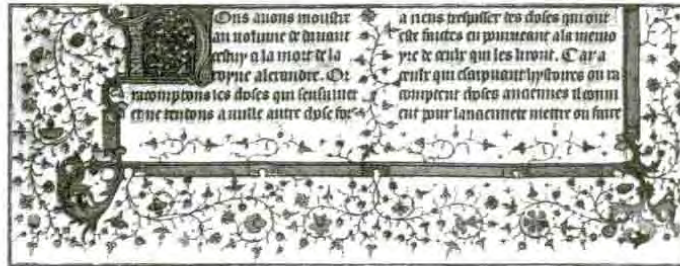 Nous auons moustre
au volume de deuant
cestuy a la mort de la
royne alexandre. Or
racomptons les choses qui sensuiuent
et ne tendons a nulle autre chose for
a neus trespasser des choses qui ont
este faictes en pourueant a la memo
yre de ceulx qui les liront. Car a
ceulx qui escripuent hystoires ou ra
comptent choses anciennes il conui
ent pour lanciennete mettre ou faire